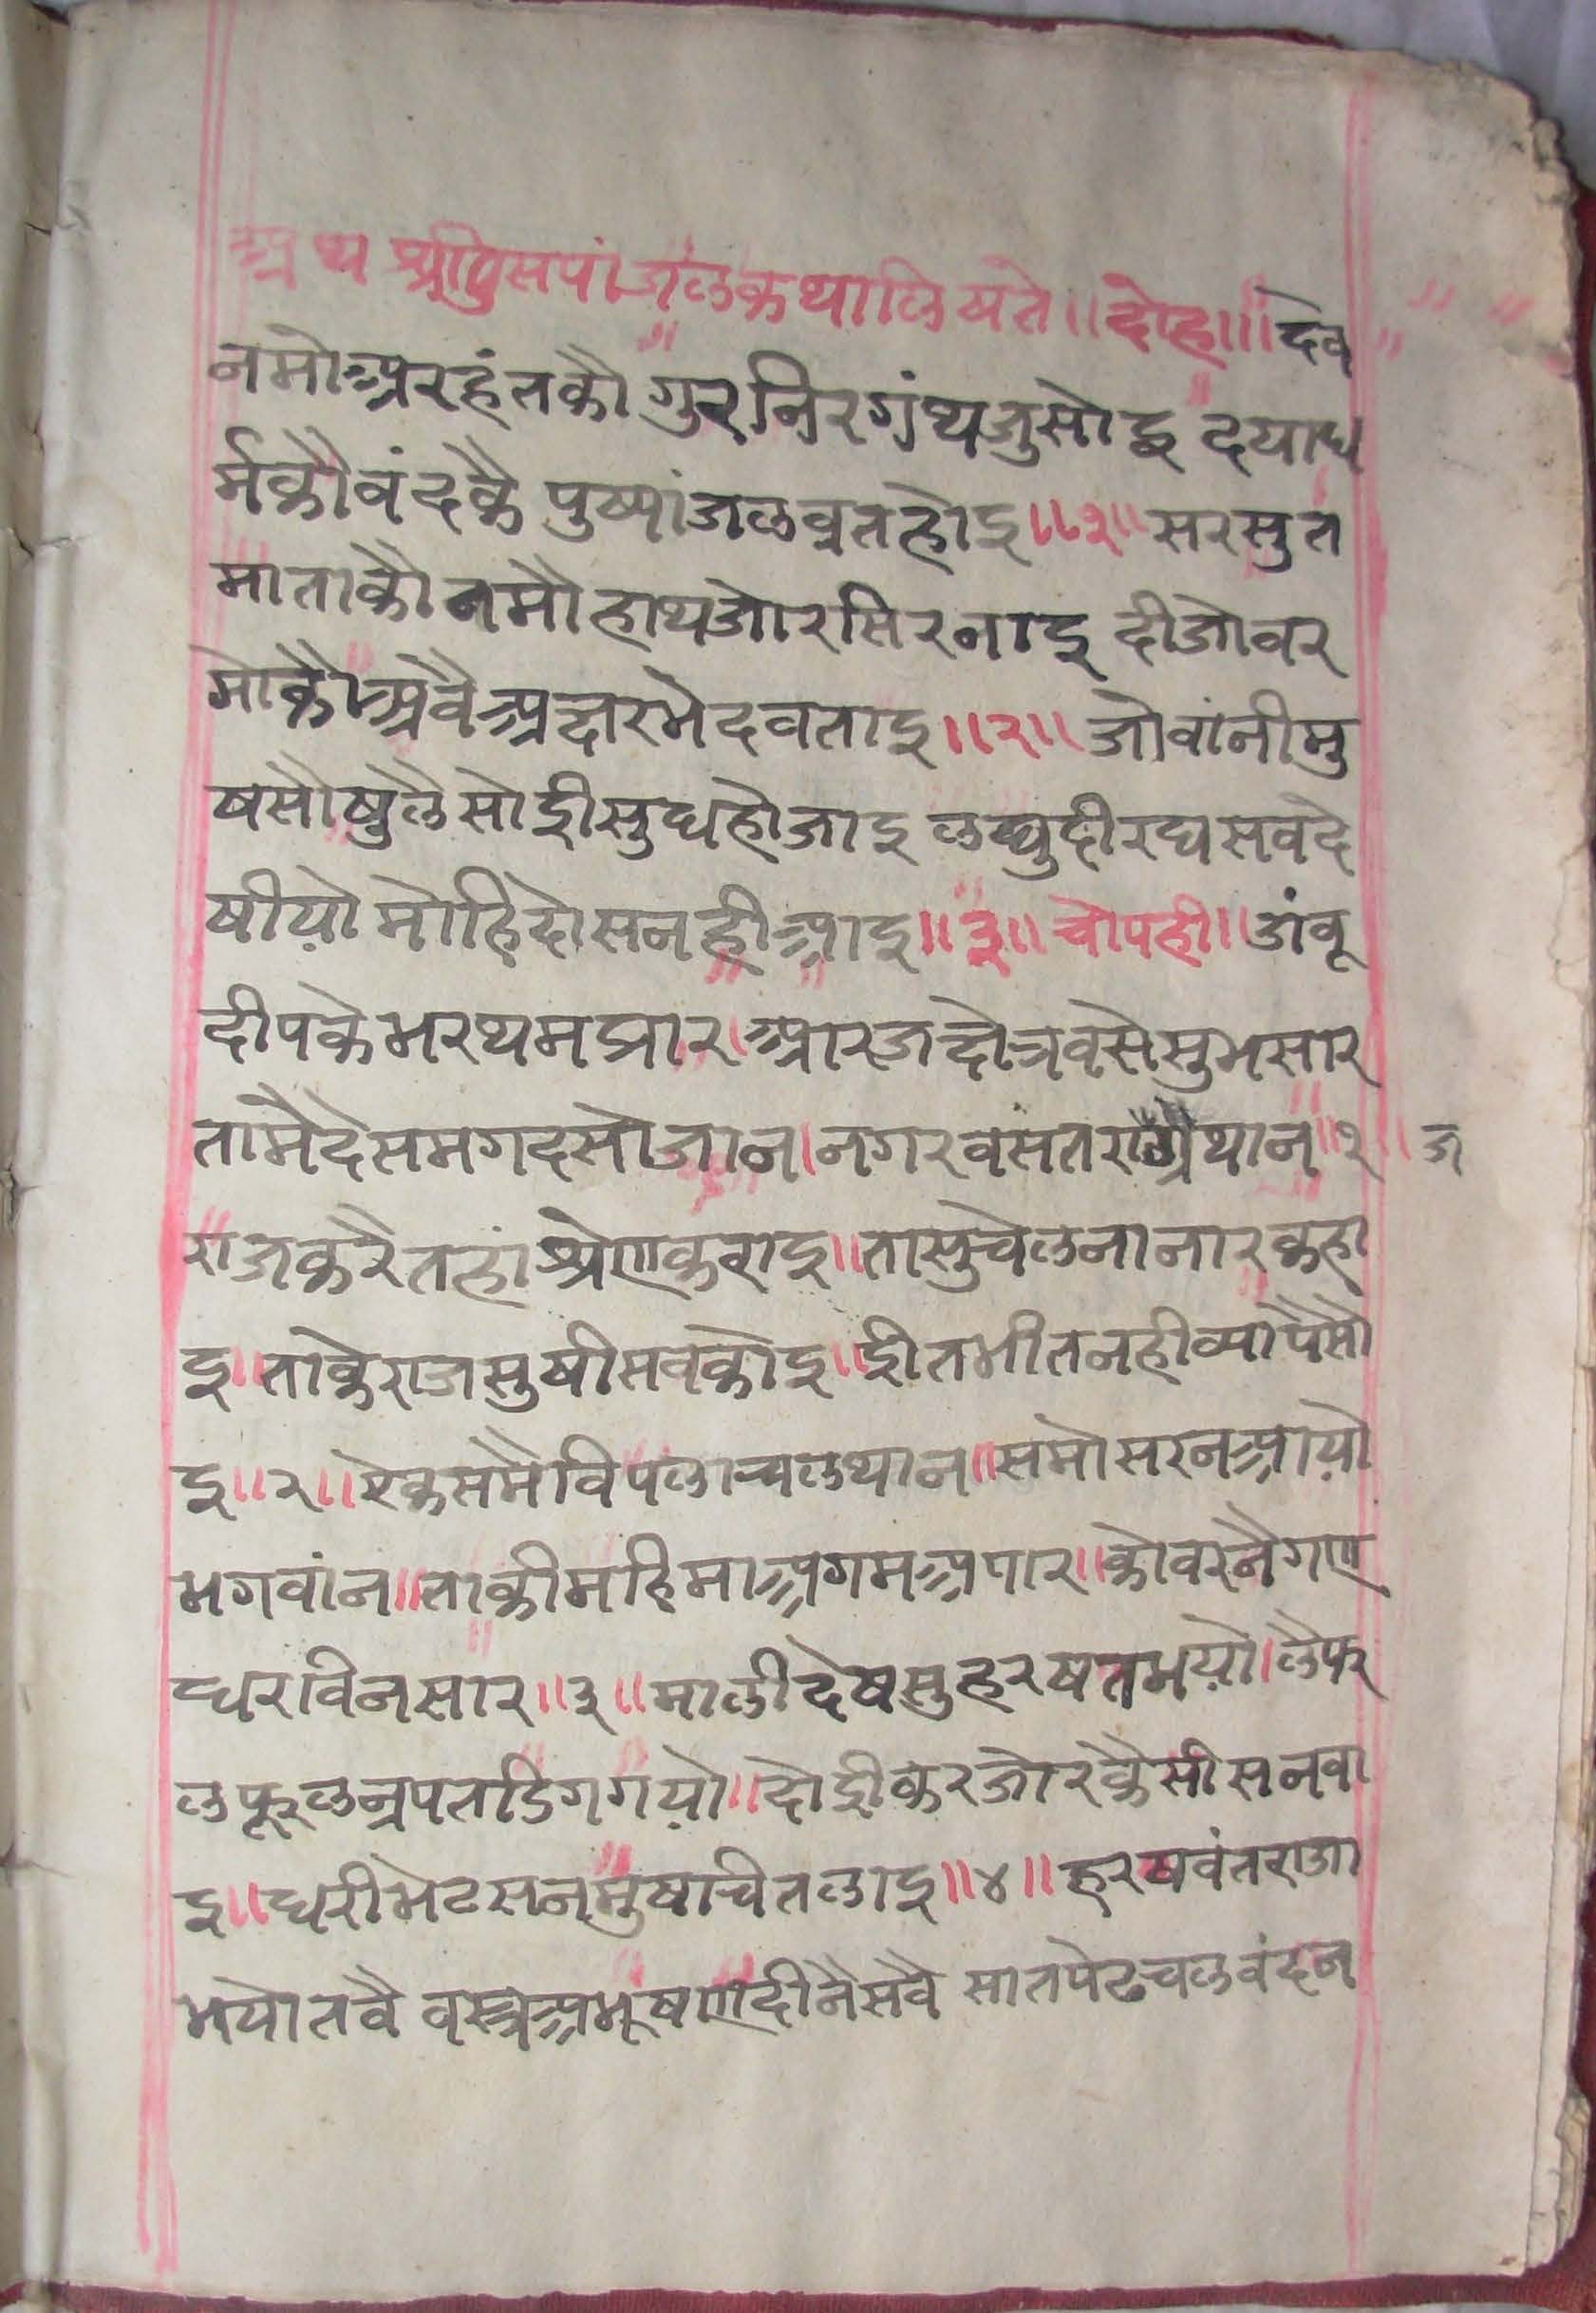 अथ श्रीपुसपांजलकथालिषते॥ दोहा॥ देव
नमोअरहंतकौ गुरनिरगंथजुसोइ दयाध
र्मकौवंदकै पुष्पांजलव्रतहोइ॥१॥ सरसुत
माताकौनमौ हाथजोरसिरनाइ दीजोवर
मोकौअवैअछारभेदवताइ॥२॥ जोवांनीमु
षसौषुलैसोईसुधहोजाइ लघुदीरघसवदे
षीयो मोहिदोसनहीआइ॥३॥ चोपही॥ जंबू
दीपकेभरथमझार।आरजछेत्रवसेसुभसार
तामैदेसमगदसोजान।नगरवसतराग्रैथान॥१॥ ज
राजकरैतहां श्रेणकराइ॥तासुचेलनानारकहा
इ॥ताकेराजसुषीसवकोइ॥ईतभीतनहीव्यापैसो
इ॥२॥ऐकसमैविपलाचलथान॥समोसरनआयो
भगवांन॥ताकीमहिमाअगमअपार॥कोवरनैगण
धरविनसार॥३॥ मालीदेषसुहरषतभयो।लैफ
लफूलनृपतढिगगयो॥दोईकरजोरकैसीसनवा
इ॥धरीभेटसनमुषचितलाइ॥४॥ हरषवंतराजा
भयोतवै वस्त्रअभूषणदीनैसवै सातपेढचलवंदन